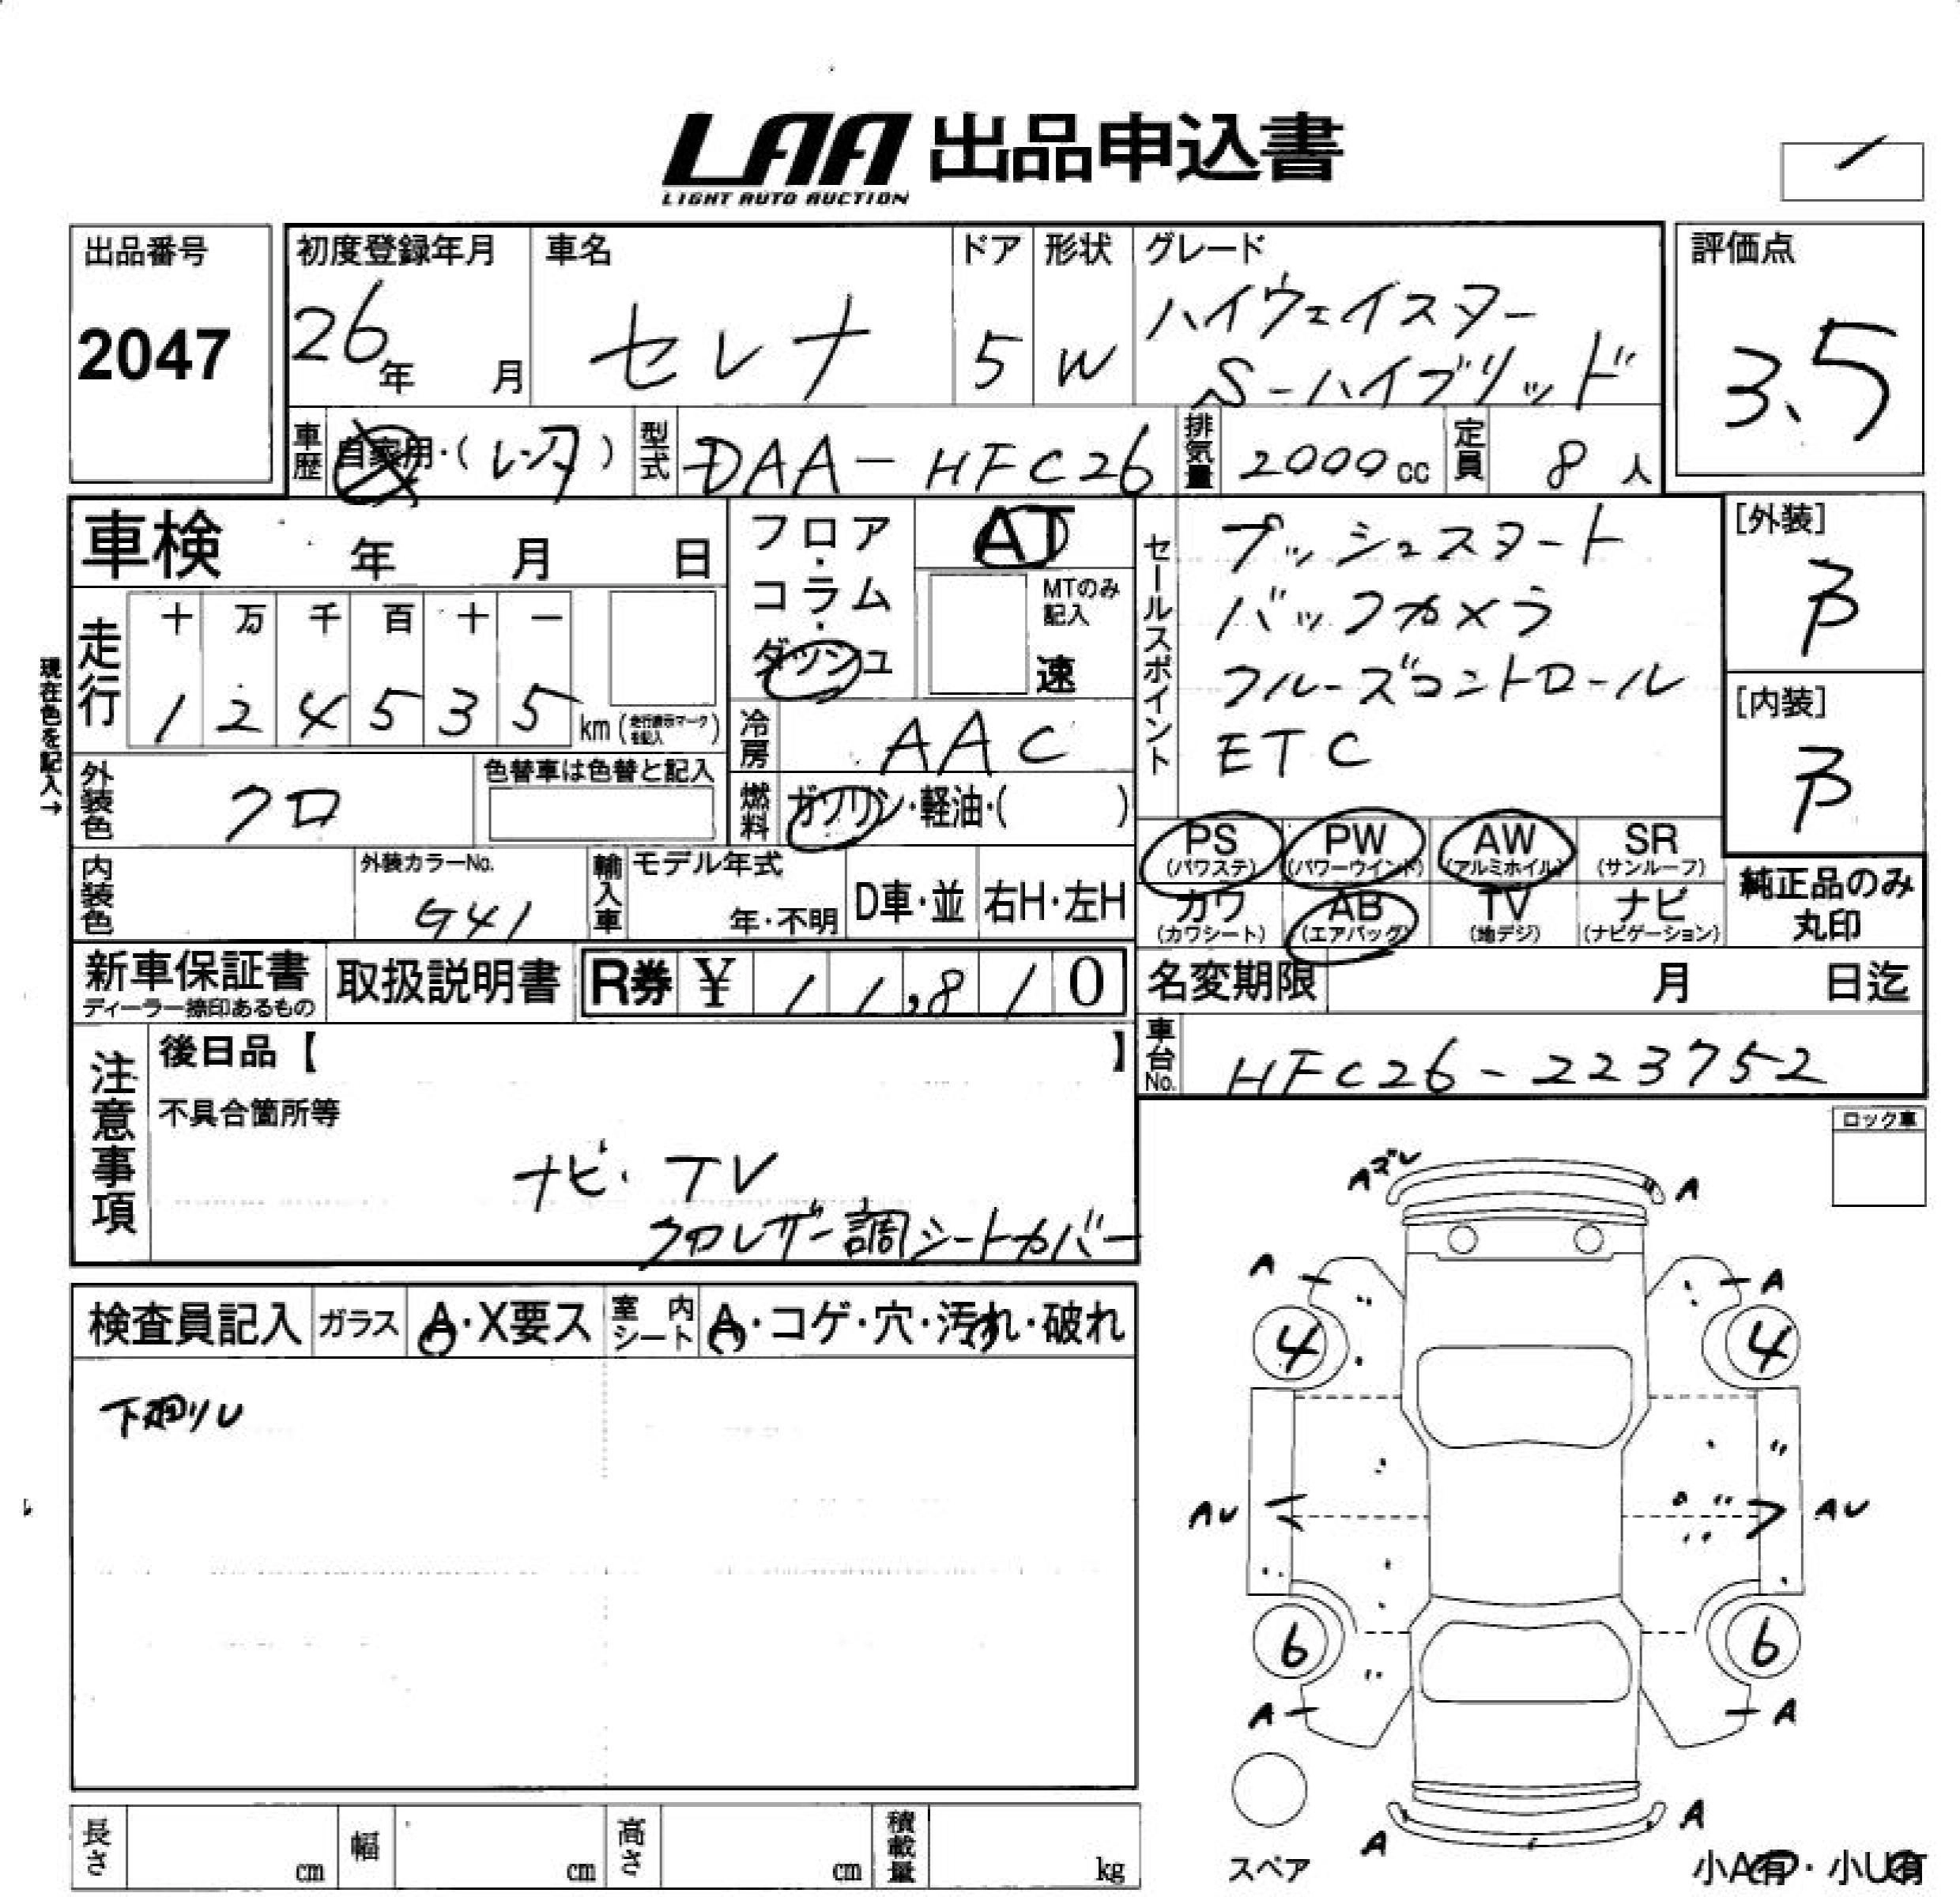 LAA 出品申込書
LIGHT AUTO AUCTION
出品番号
2047
初度登録年月
26年 月
車名
セレナ
ドア
5
形状
W
グレード
ハイウェイスター
S-ハイブリッド
評価点
3.5
車歴 自家用・(レンタ)
型式 DAA-HFC26
排気量 2000cc
定員 8人
車検 年 月 日
フロア・コラム・ダッシュ
AT
MTのみ記入
速
セールスポイント
プッシュスタート
バックカメラ
クルーズコントロール
ETC
[外装]
B
[内装]
B
現在色を記入→
走行
十 万 千 百 十 一
1 2 4 5 3 5 km (走行表示マークを記入)
冷房 AAC
外装色 クロ
色替車は色替と記入
燃料 ガソリン・軽油・( )
PS (パワステ) PW (パワーウインド) AW (アルミホイル) SR (サンルーフ)
カワ (カワシート) AB (エアバッグ) TV (地デジ) ナビ (ナビゲーション)
純正品のみ
丸印
内装色
外装カラーNo.
G41
輸入車 モデル年式
年・不明
D車・並 右H・左H
新車保証書
ディーラー捺印あるもの
取扱説明書
R券 ¥ 11,810
名変期限 月 日迄
車台No. HFC26-223752
注意事項
後日品【 】
不具合箇所等
ナビ・TV
クロレザー調シートカバー
ロック車
検査員記入 ガラス A・X要ス 室内シート A・コゲ・穴・汚れ・破れ
下廻りU
Aズレ A
A A
4 4
AU AU
6 6
A A
A A
スペア
小A有・小U有
長さ cm 幅 cm 高さ cm 積載量 kg